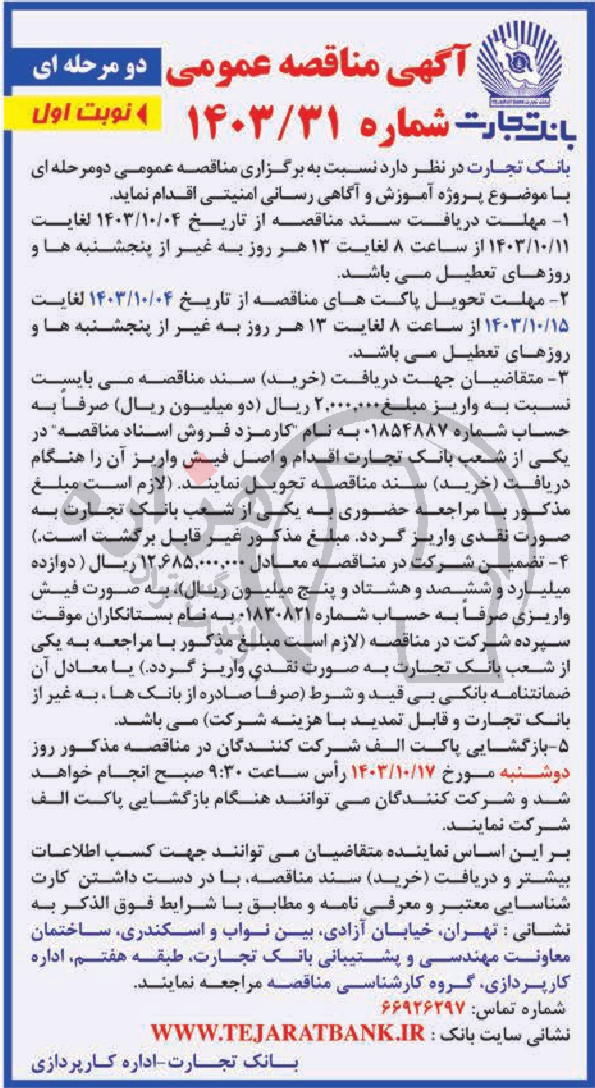 آگهی مناقصه عمومی
دو مرحله ای
شماره ۱۴۰۳/۳۱
نوبت اول
بانک تجارت
بانک تجارت در نظر دارد نسبت به برگزاری مناقصه عمومی دومرحله ای
با موضوع پروژه آموزش و آگاهی رسانی امنیتی اقدام نماید.
۱- مهلت دریافت سند مناقصه از تاریخ ۱۴۰۳/۱۰/۰۴ لغایت
۱۴۰۳/۱۰/۱۱ از ساعت ۸ لغایت ۱۳ هر روز به غیر از پنجشنبه ها و
روزهای تعطیل می باشد.
۲- مهلت تحویل پاکت های مناقصه از تاریخ ۱۴۰۳/۱۰/۰۴ لغایت
۱۴۰۳/۱۰/۱۵ از ساعت ۸ لغایت ۱۳ هر روز به غیر از پنجشنبه ها و
روزهای تعطیل می باشد.
۳- متقاضیان جهت دریافت (خرید) سند مناقصه می بایست
نسبت به واریز مبلغ۲,۰۰۰,۰۰۰ ریال (دو میلیون ریال) صرفاً به
حساب شماره ۰۱۸۵۴۸۸۷ به نام "کارمزد فروش اسناد مناقصه" در
یکی از شعب بانک تجارت اقدام و اصل فیش واریز آن را هنگام
دریافت (خرید) سند مناقصه تحویل نمایند. (لازم است مبلغ
مذکور با مراجعه حضوری به یکی از شعب بانک تجارت به
صورت نقدی واریز گردد. مبلغ مذکور غیر قابل برگشت است.)
۴- تضمین شرکت در مناقصه معادل ۱۲,۶۸۵,۰۰۰,۰۰۰ ریال ( دوازده
میلیارد و ششصد و هشتاد و پنج میلیون ریال)، به صورت فیش
واریزی صرفاً به حساب شماره ۱۸۳۰۸۲۱-۰ به نام بستانکاران موقت
سپرده شرکت در مناقصه (لازم است مبلغ مذکور با مراجعه به یکی
از شعب بانک تجارت به صورت نقدی واریز گردد.) یا معادل آن
ضمانتنامه بانکی بی قید و شرط (صرفاً صادره از بانک ها ، به غیر از
بانک تجارت و قابل تمدید با هزینه شرکت) می باشد.
۵-بازگشایی پاکت الف شرکت کنندگان در مناقصه مذکور روز
دوشنبه مورخ ۱۴۰۳/۱۰/۱۷ رأس ساعت ۹:۳۰ صبح انجام خواهد
شد و شرکت کنندگان می توانند هنگام بازگشایی پاکت الف
شرکت نمایند.
بر این اساس نماینده متقاضیان می توانند جهت کسب اطلاعات
بیشتر و دریافت (خرید) سند مناقصه، با در دست داشتن کارت
شناسایی معتبر و معرفی نامه و مطابق با شرایط فوق الذکر به
نشانی : تهران، خیابان آزادی، بین نواب و اسکندری، ساختمان
معاونت مهندسی و پشتیبانی بانک تجارت، طبقه هفتم، اداره
کارپردازی، گروه کارشناسی مناقصه مراجعه نمایند.
شماره تماس: ۶۶۹۲۶۲۹۷
نشانی سایت بانک : WWW.TEJARATBANK.IR
بانک تجارت-اداره کارپردازی